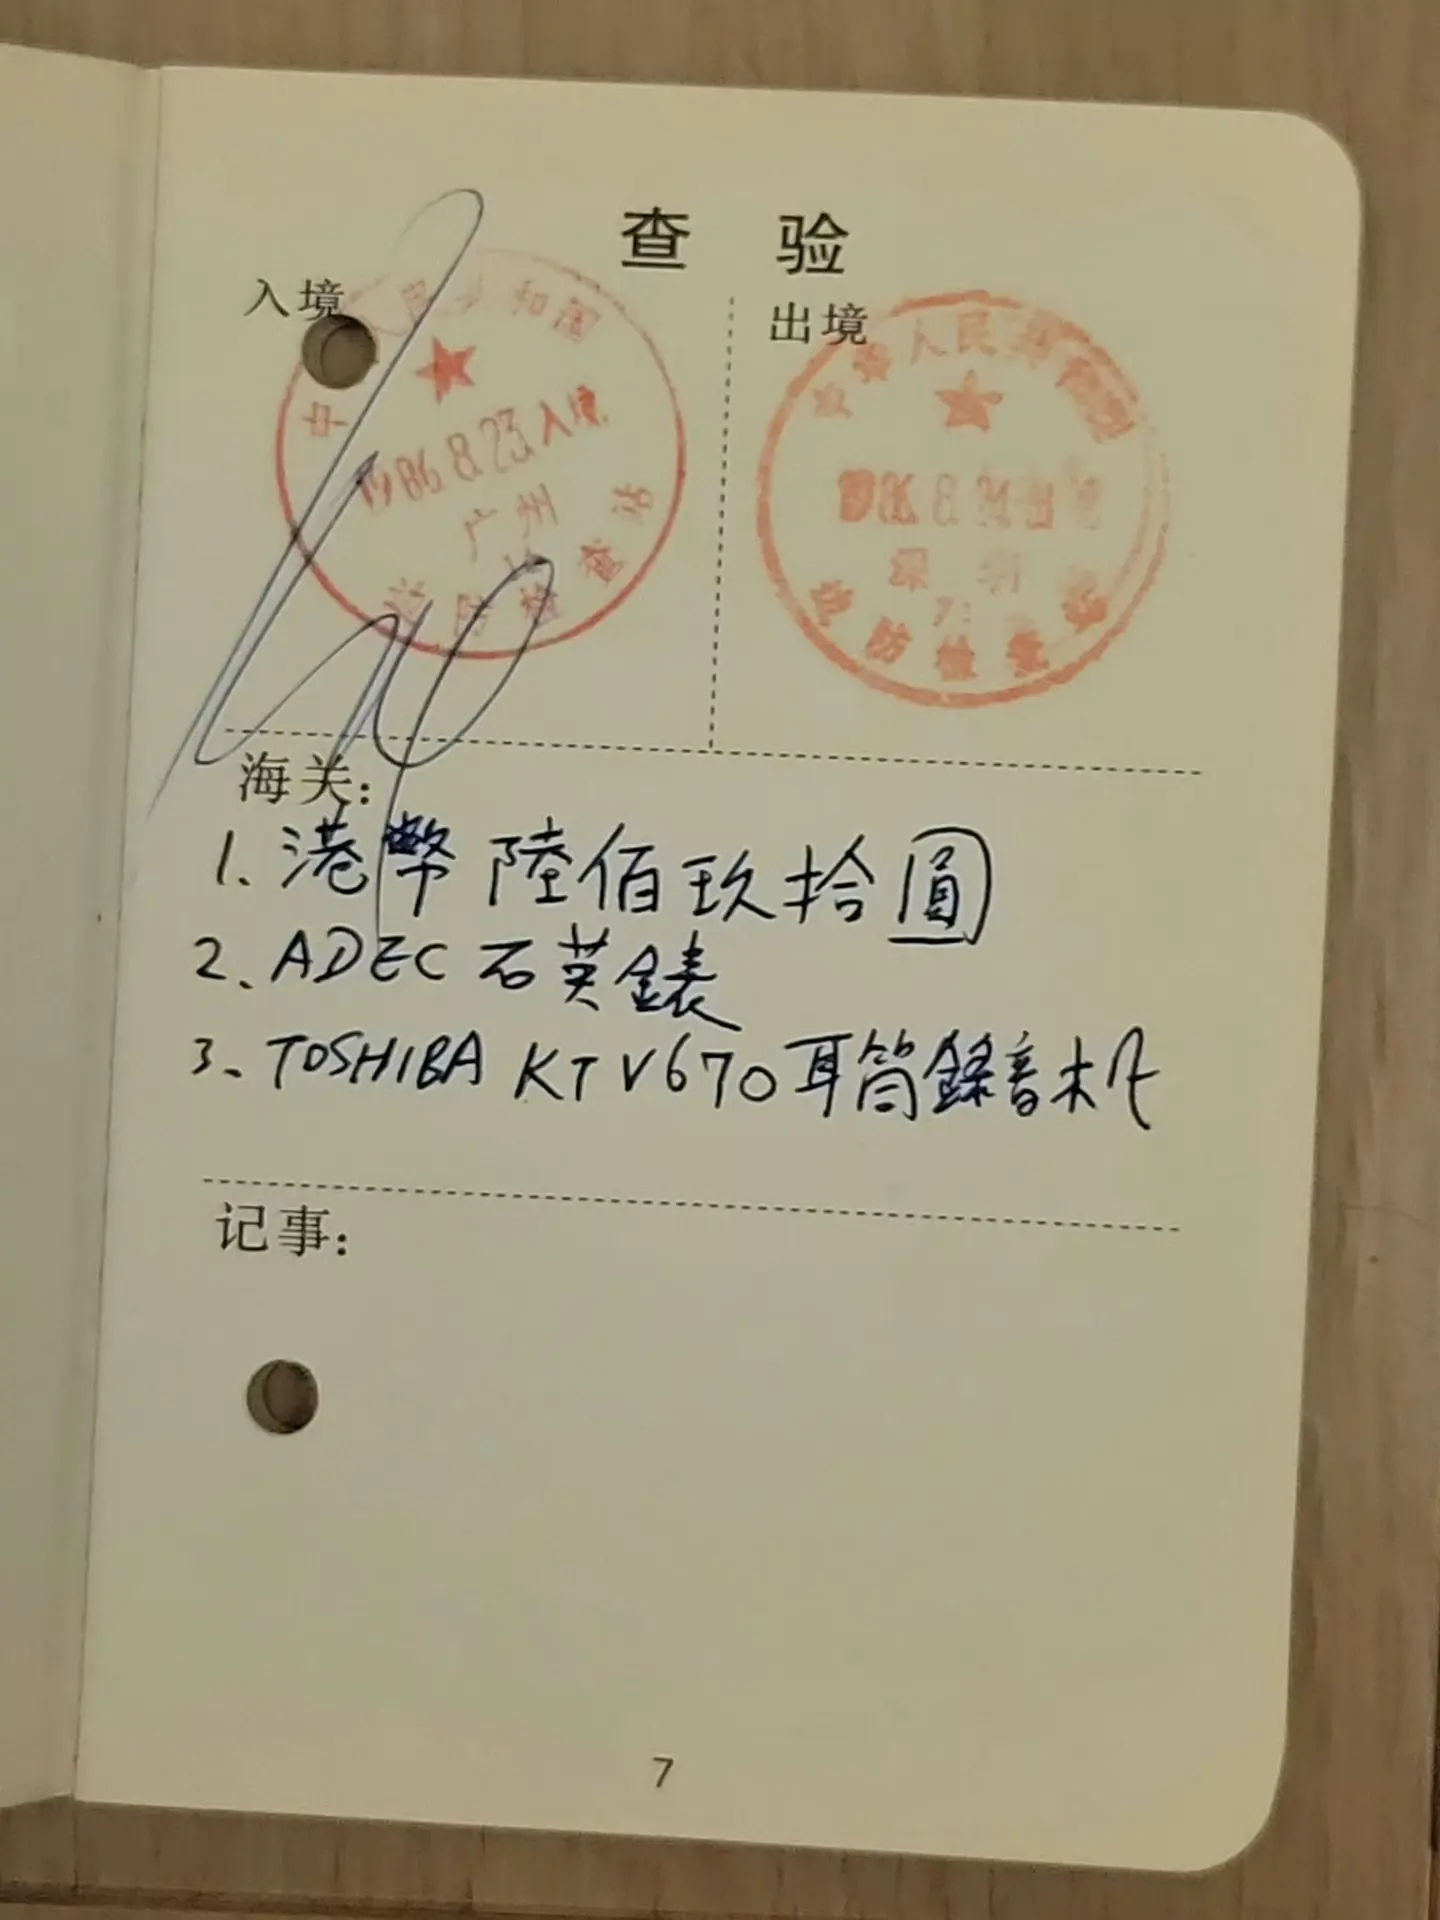 查 验
入境
出境
中 人民共和国
1986.8.23入境
广州
边防检查站
人民共和国
深圳
边防检查站
海关：
1、港幣 陸佰玖拾圓
2、ADEC 石英錶
3、TOSHIBA KT V670耳筒錄音机
记事：
7